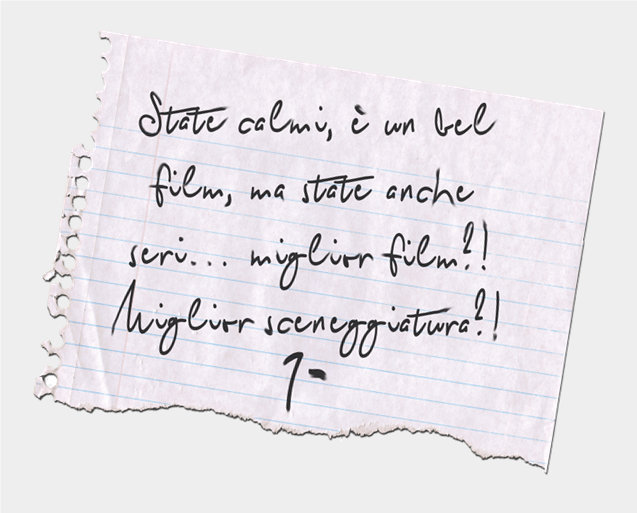 State calmi, è un bel
film, ma state anche
seri... miglior film?!
Miglior sceneggiatura?!
1-